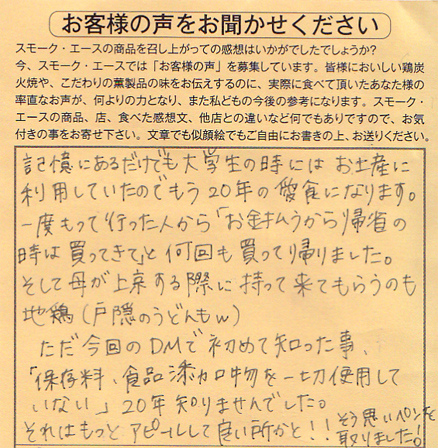 お客様の声をお聞かせください
スモーク・エースの商品を召し上がっての感想はいかがでしたでしょうか?
今、スモーク・エースでは「お客様の声」を募集しています。皆様においしい鶏炭
火焼や、こだわりの薫製品の味をお伝えするのに、実際に食べて頂いたあなた様の
率直なお声が、何よりの力となり、また私どもの今後の参考になります。スモーク・
エースの商品、店、食べた感想文、他店との違いなど何でもありですので、お気
付きの事をお寄せ下さい。文章でも似顔絵でもご自由にお書きの上、お送りください。
記憶にあるだけでも大学生の時には お土産に
利用していたのでもう20年の愛食になります。
一度もって行った人から「お金払うから帰省の
時は買ってきて」と何回も買って帰りました。
そして母が上京する際に持って来てもらうのも
地鶏(戸隠のうどんもw)
ただ今回のDMで初めて知った事、
「保存料、食品添加物を一切使用して
いない」20年知りませんでした。
それはもっとアピールして良い所かと!!そう思いペンを
取りました!